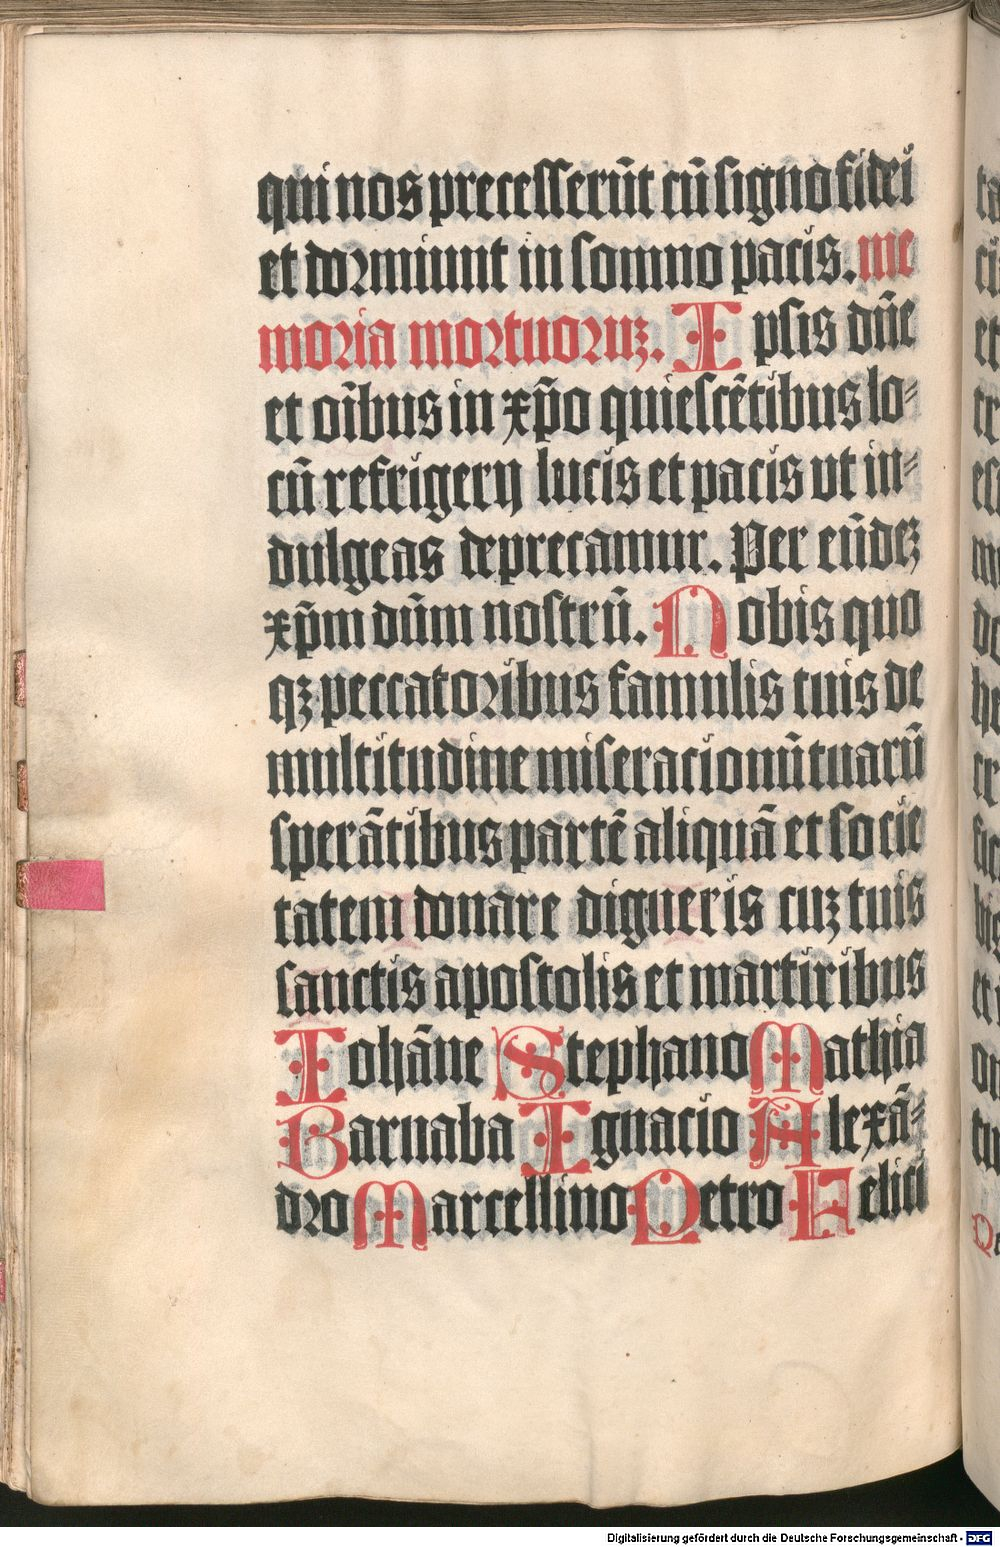 qui nos precesserūt cū signo fidei
et dormiunt in somno pacis. me
moria mortuoruz. Ipsis dn̄e
et oībus in xp̄o quiescētibus lo-
cū refrigerij lucis et pacis vt in-
dulgeas deprecamur. Per eūdez
xp̄m dn̄m nostrū. Nobis quo
qz peccatoribus famulis tuis de
multitudine miseracionū tuarū
sperātibus partē aliquā et socie
tatem donare digneris cuz tuis
sanctis apostolis et martiribus
Iohāne Stephano Mathia
Barnaba Ignacio Alexā-
dro Marcellino Petro Felici
Digitalisierung gefördert durch die Deutsche Forschungsgemeinschaft - DFG